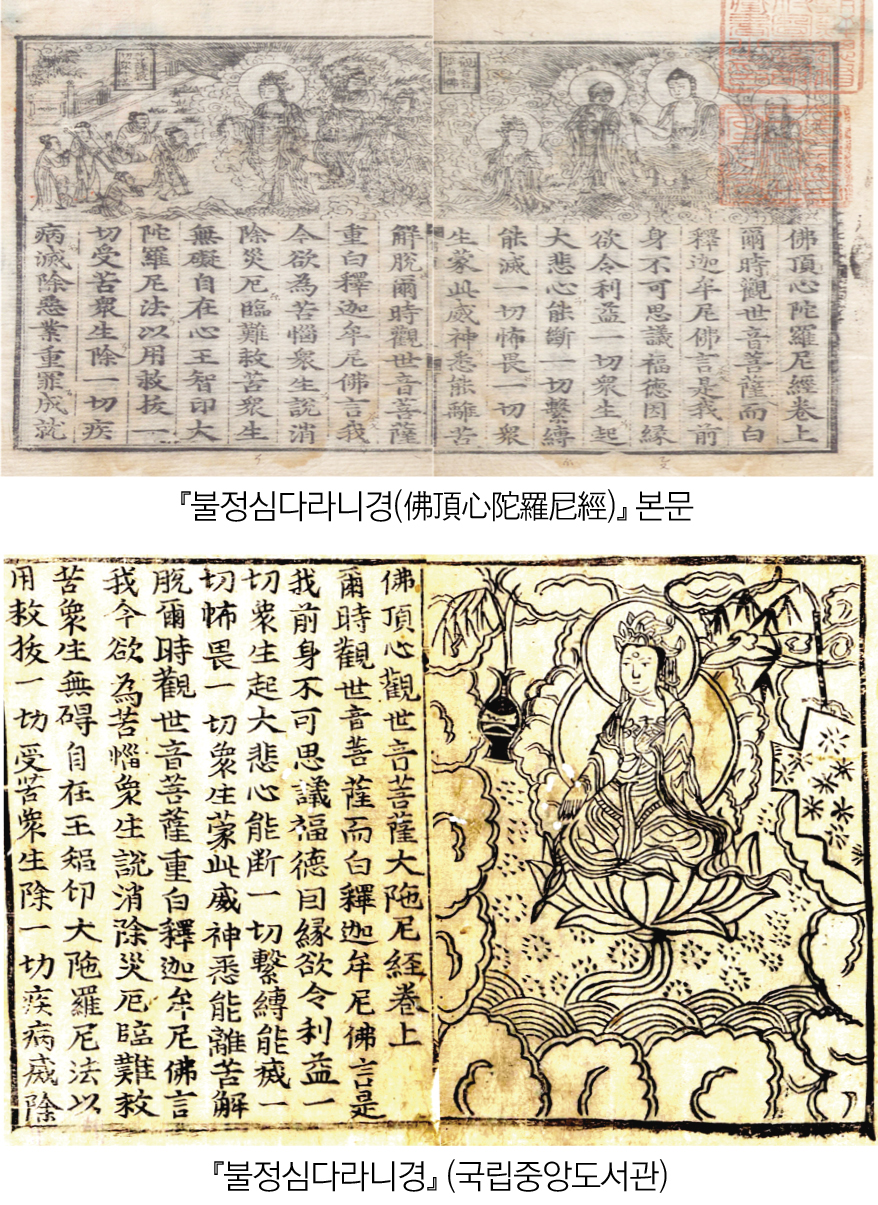 佛頂心陀羅尼經卷上
爾時觀世音菩薩而白
釋迦牟尼佛言是我前
身不可思議福德因緣
欲令利益一切衆生起
大悲心能斷一切繫縛
能滅一切怖畏一切衆
生蒙此威神悉能離苦
解脫爾時觀世音菩薩
重白釋迦牟尼佛言我
今欲為苦惱衆生說消
除災厄臨難救苦衆生
無礙自在心王智印大
陀羅尼法以用救拔一
切受苦衆生除一切疾
病滅除惡業重罪成就
『불정심다라니경(佛頂心陀羅尼經)』 본문
佛頂心觀世音菩薩大陁尼經卷上
爾時觀世音菩薩而白釋迦牟尼佛言是
我前身不可思議福德因緣欲令利益一
切衆生起大悲心能断一切繫縛能滅一
切怖畏一切衆生蒙此威神悉能離苦解
脫爾時觀世音菩薩重白釋迦牟尼佛言
我今欲為苦惱衆生說消除災厄臨難救
苦衆生無碍自在王智印大陁羅尼法以
用救拔一切受苦衆生除一切疾病滅除
『불정심다라니경』 (국립중앙도서관)